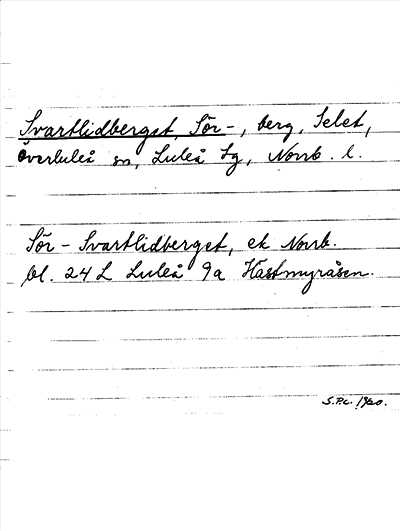 Svartlidberget, Sör-, berg, Selet,
Överluleå sn, Luleå tg, Norrb. l.
Sör-Svartlidberget, ek Norrb.
bl. 24 L Luleå 9a Hästmyråsen.
1960.